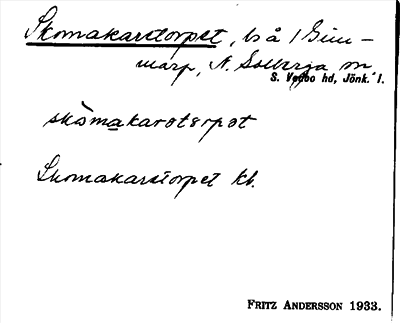 Skomakaretorpet, ls å 1 Gim-
marp, N. Solberga sn
S. Vedbo hd, Jönk. l.
skómakarotørpot
Skomakaretorpet kb.
FRITZ ANDERSSON 1933.